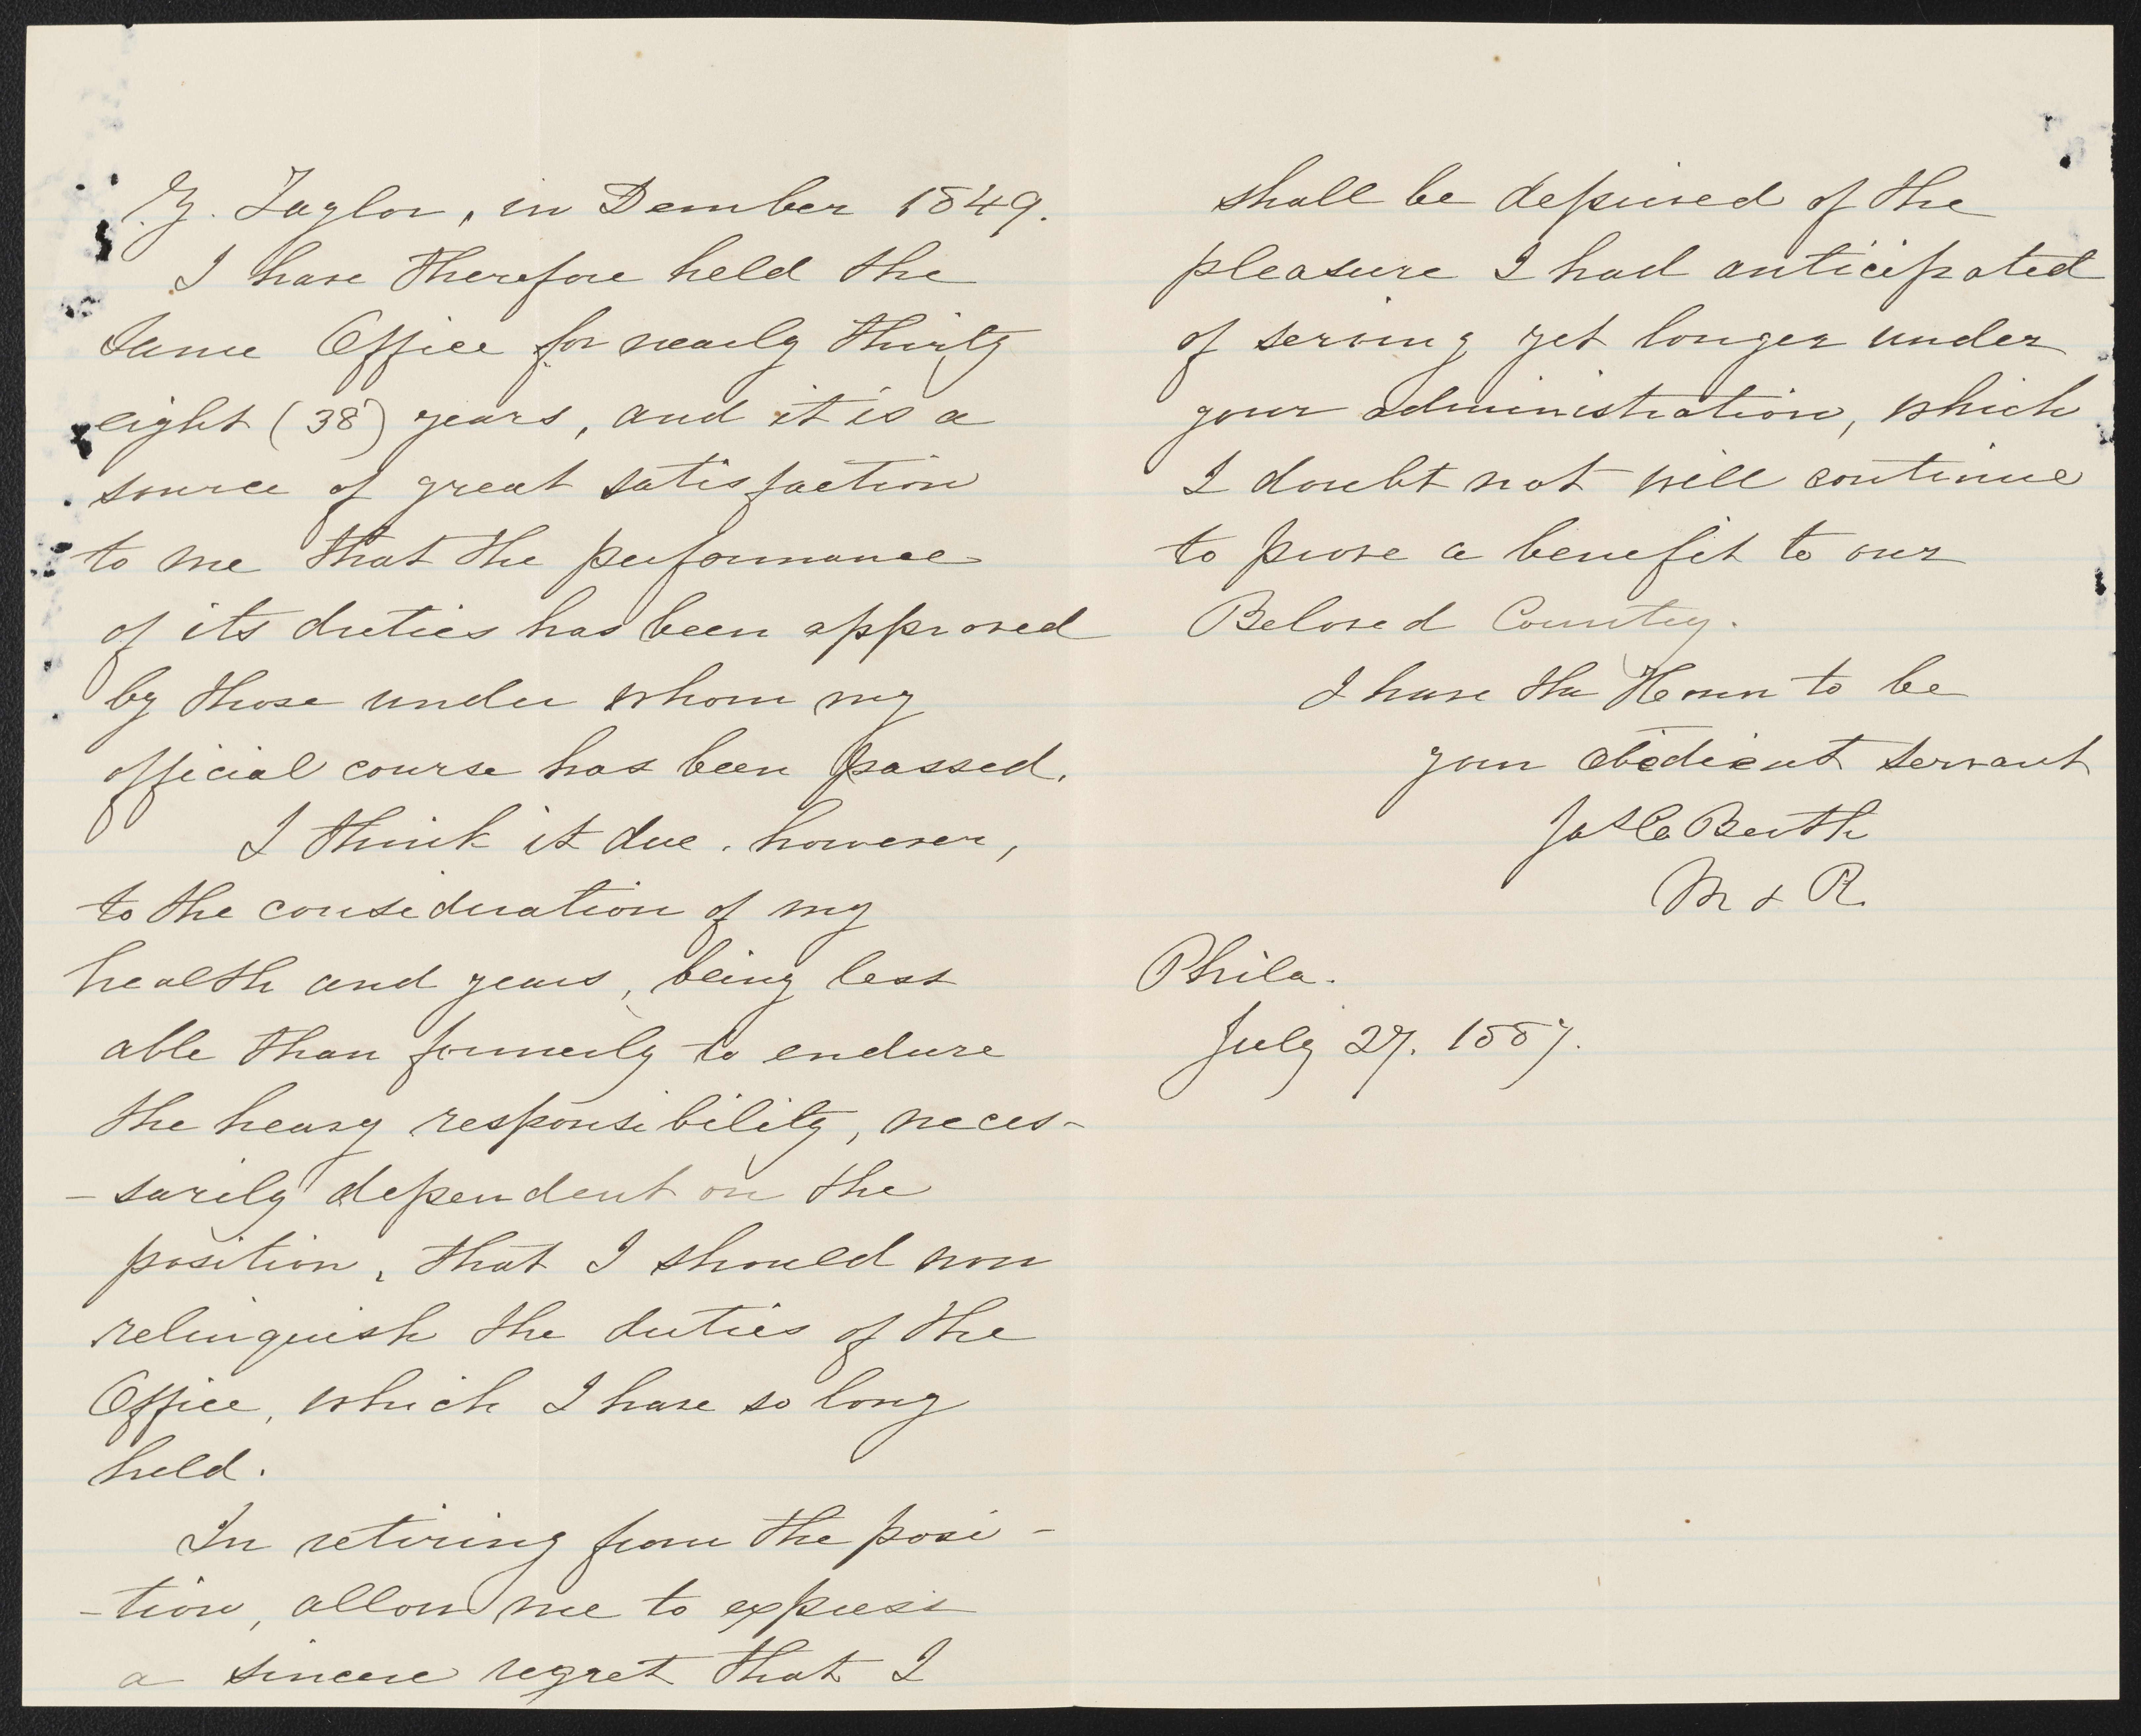 Z. Taylor, in Dember 1849.
I have therefore held the
same Office for nearly thirty
eight (38) years, and it is a
source of great satisfaction
to me that the performance
of its duties has been approved
by those under whom my
official course has been passed.
I think it due, however,
to the consideration of my
health and years, being less
able than formerly to endure
the heavy responsibility, neces-
-sarily dependent on the
position, that I should now
relinquish the duties of the
Office, which I have so long
held.
In retiring from the posi-
-tion, allow me to express
a sincere regret that I
shall be deprived of the
pleasure I had anticipated
of serving yet longer under
your administration, which
I doubt not will continue
to prove a benefit to our
Beloved Country.
I have the Honor to be
your obedient servant
Jas C Booth
M & R.
Phila.
July 27. 1887.